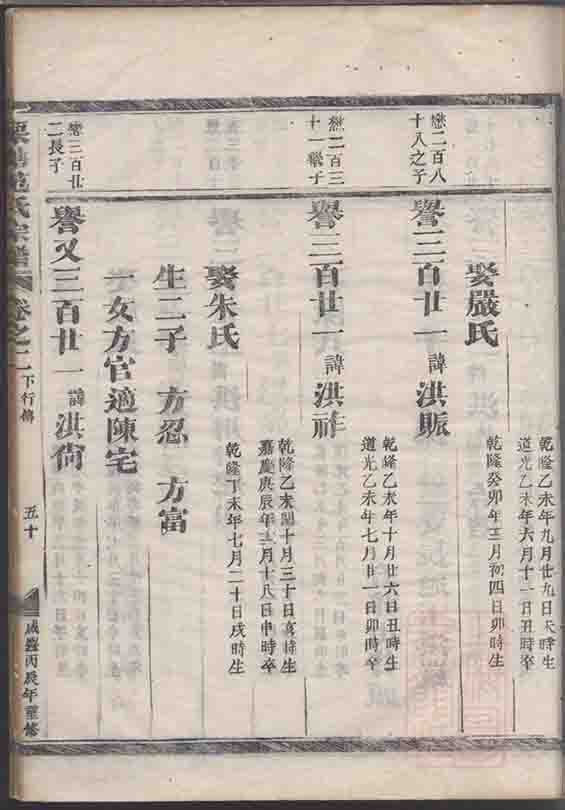 乾隆乙未年九月廿九日戌時生
道光乙未年六月十一日丑時卒
娶嚴氏
乾隆癸卯年三月初四日卯時生
戀二百八
十八之子
譽三百廿一 諱 洪賑
乾隆乙未年十月廿六日丑時生
道光乙未年七月廿一日卯時卒
戀二百三
十一繼子
譽三百廿一 諱 洪祚
乾隆乙未閏十月三十日亥時生
嘉慶庚辰年三月十八日申時卒
娶朱氏
乾隆丁未年七月二十日戌時生
生二子 方忍 方富
一女方官適陳宅
戀三百廿
二長子
譽又三百廿一 諱 洪尙
氏宗譜 卷之二 下行傳 五十 咸豐丙辰年重修